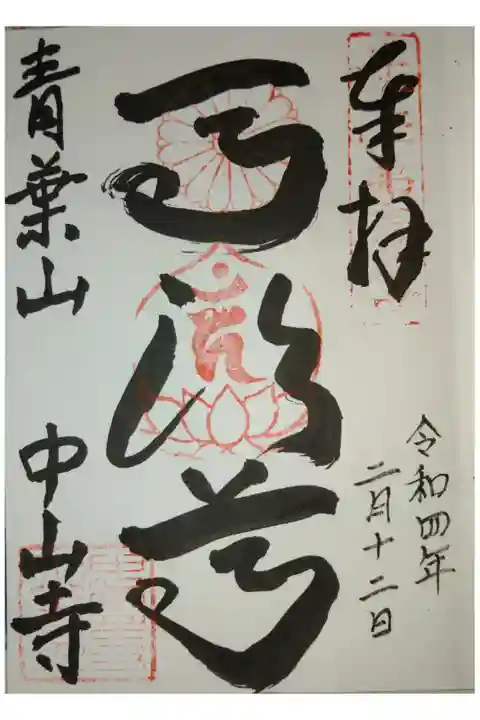 奉拝
令和四年
二月十二日
馬頭尊
青葉山 中山寺